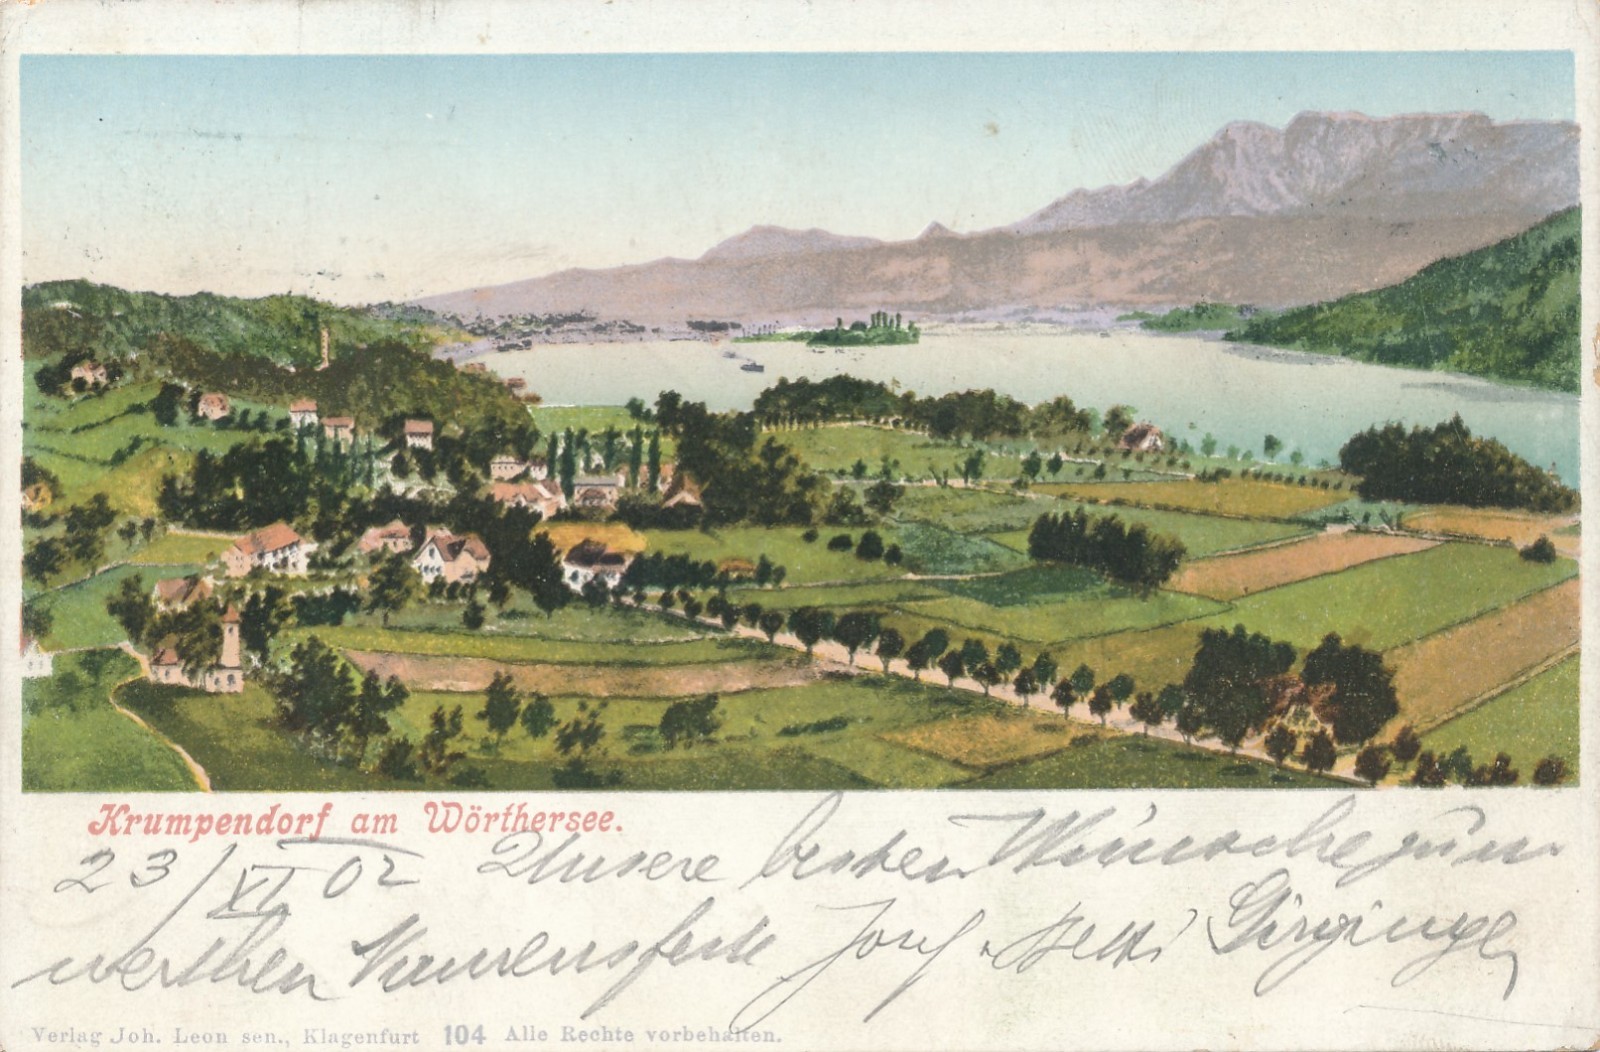 Krumpendorf am Wörthersee.
23/XI 02 Unsere besten Wünsche zum
werthen Namensfeste Josef u. Betti
Verlag Joh. Leon sen., Klagenfurt 104 Alle Rechte vorbehalten.